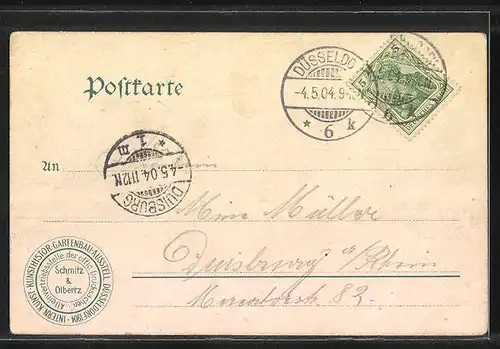 Postkarte
DÜSSELDO
-4.5.04.9-
* 6 k
An
DUISBURG
-4.5.04.11-12N.
* 1 m
Müller
Duisburg a/Rhein
Mercatorstr. 82.
INTERN. KUNST- KUNSTHISTOR.- GARTENBAU-AUSSTELL. DÜSSELDORF 1904
Alleinvertriebsstelle der offiz. Drucksachen
Schmitz
&
Olbertz